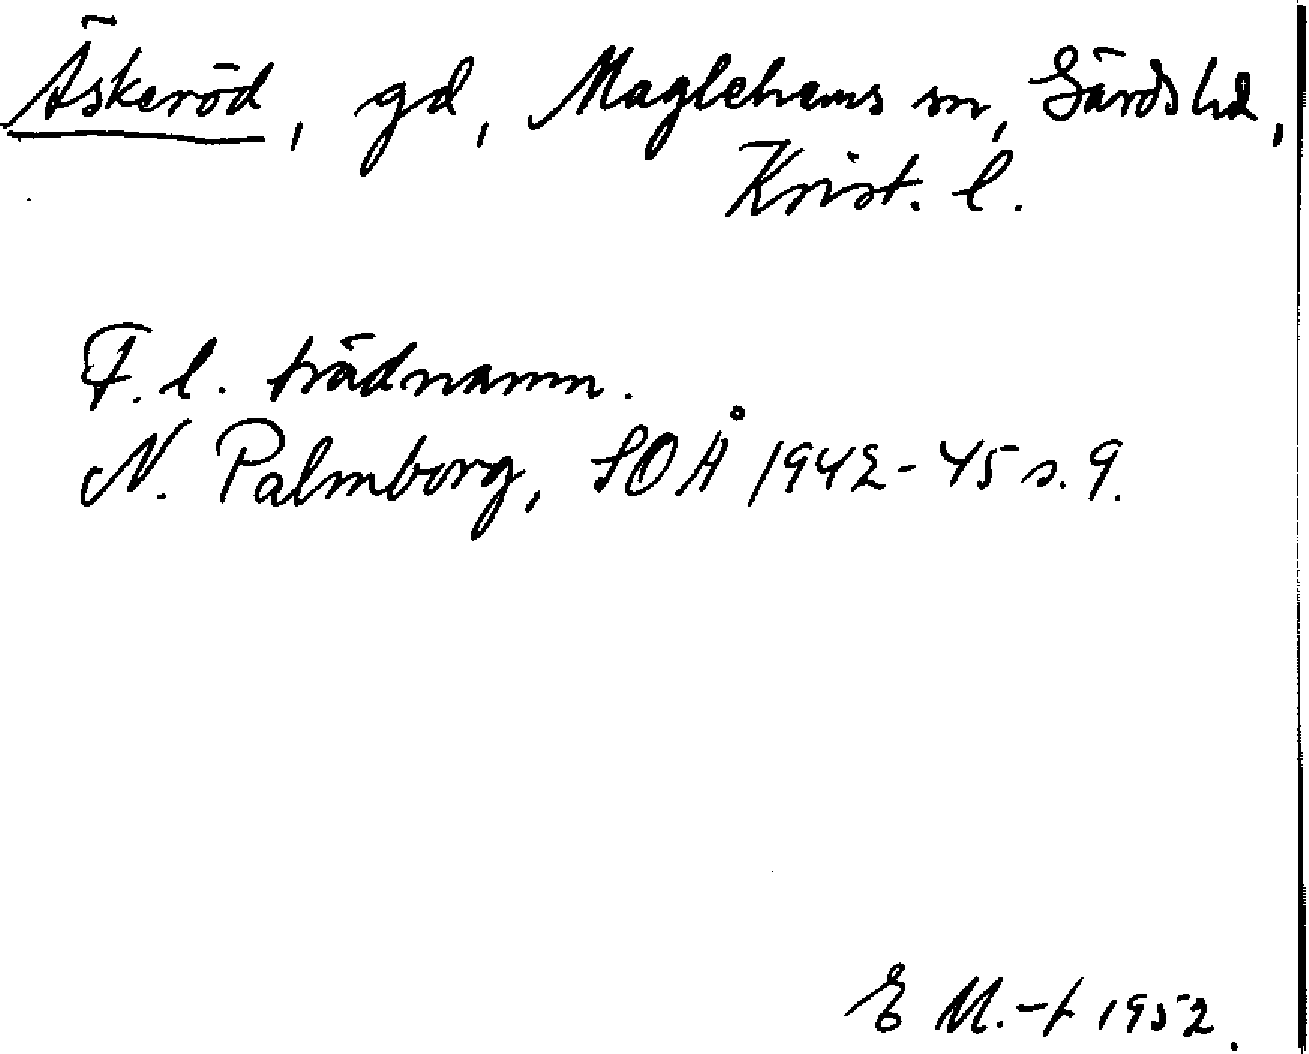 Äskeröd, gd, Maglehems sn, Gärds hd,
Krist. l.
F. l. trädnamn.
N. Palmborg, SOÅ 1942-45 s. 9.
E M.-f 1952.